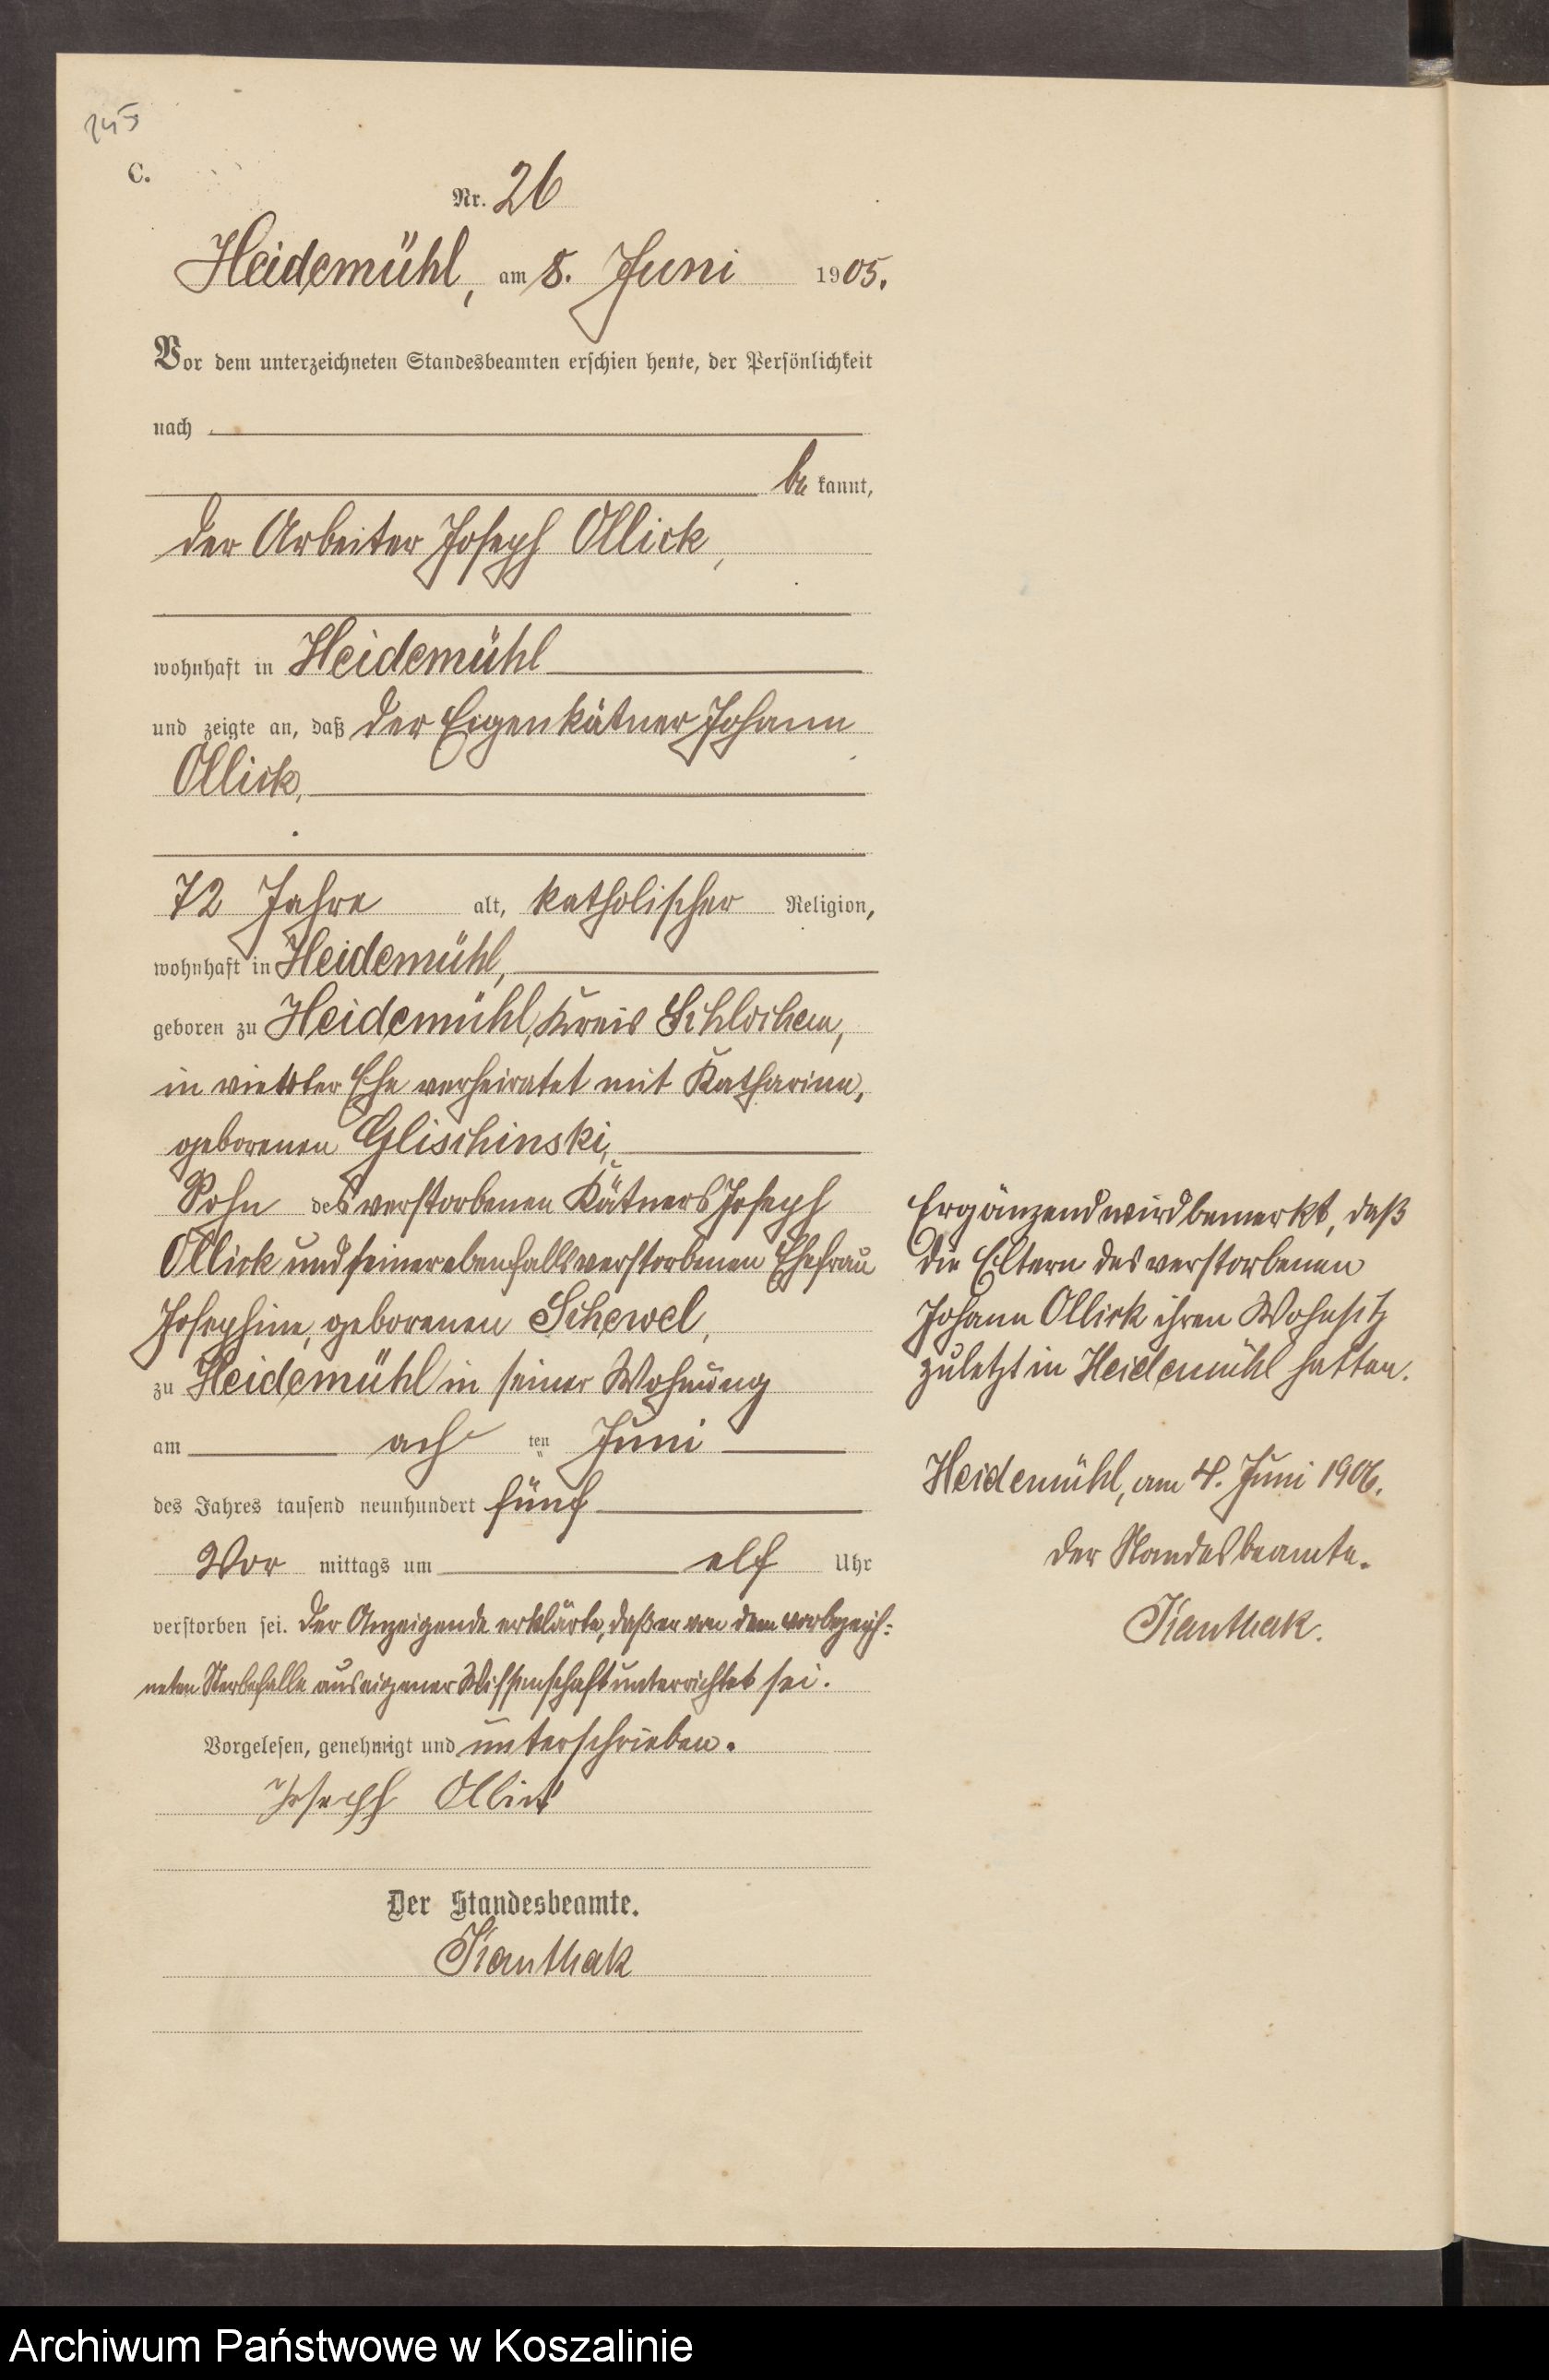 245
C.
Nr. 26
Heidemühl, am 8. Juni 1905.
Vor dem unterzeichneten Standesbeamten erschien heute, der Persönlichkeit
nach
be kannt,
der Arbeiter Joseph Ollick,
wohnhaft in Heidemühl
und zeigte an, daß der Eigenkätner Johann
Ollick,
72 Jahre alt, katholischer Religion,
wohnhaft in Heidemühl,
geboren zu Heidemühl, Kreis Schlochau,
in Ehe verheiratet mit Katharina,
geborenen Glischinski,
Sohn des verstorbenen Kätners Joseph
Ollick und seiner ebenfalls verstorbenen Ehefrau
Josephine, geborenen Schewel,
zu Heidemühl in seiner Wohnung
am ach ten Juni
des Jahres tausend neunhundert fünf
Vor mittags um elf Uhr
verstorben sei. Der Anzeigende erklärte, daß er von dem vorbezeich-
neten Sterbefalle aus eigener Wissenschaft unterrichtet sei.
Vorgelesen, genehmigt und unterschrieben.
Joseph Ollick
Der Standesbeamte.
Kanthak
Ergänzend wird bemerkt, daß
die Eltern des verstorbenen
Johann Ollick ihren Wohnsitz
zuletzt in Heidemühl hatten.
Heidemühl, am 4. Juni 1906.
Der Standesbeamte.
Kanthak.
Archiwum Państwowe w Koszalinie